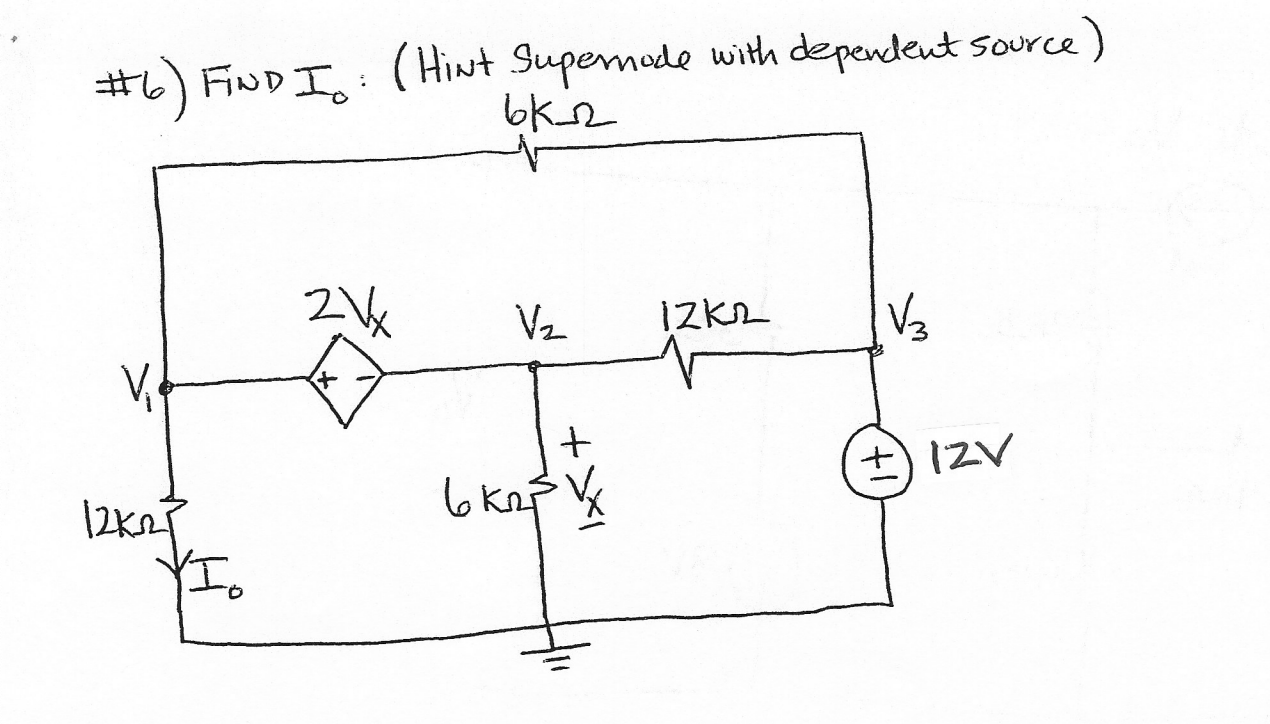 #6) FIND I₀: (Hint Supernode with dependent source)
6KΩ
2Vx
V₂
12KΩ
V₃
V₁
+ -
+
6KΩ
Vx
-
+
-
12V
12KΩ
I₀